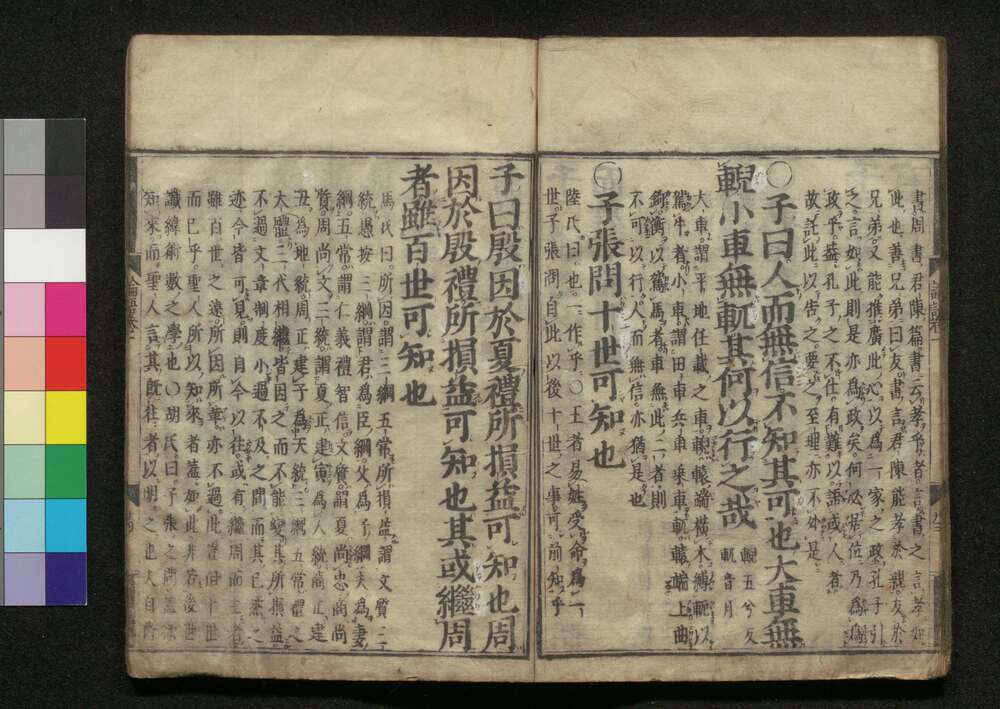 書周書君陳篇書云孝乎者言書之言孝如
此也善兄弟曰友書言君陳能孝於親友於
兄弟又能推廣此心以為一家之政孔子引
之言如此則是亦為政矣何必居位乃為為
政乎蓋孔子之不仕有難以語或人者
故託此以告之要之至理亦不外是
○子曰人而無信不知其可也大車無
輗小車無軏其何以行之哉 輗五兮反 軏音月
大車謂平地任載之車輗轅端橫木縛軛以
駕牛者小車謂田車兵車乘車軏轅端上曲
鉤衡以駕馬者車無此二者則
不可以行人而無信亦猶是也
○子張問十世可知也
陸氏曰也一作乎○王者易姓受命為一
世子張問自此以後十世之事可前知乎
子曰殷因於夏禮所損益可知也周
因於殷禮所損益可知也其或繼周
者雖百世可知也
馬氏曰所因謂三綱五常所損益謂文質三
統愚按三綱謂君為臣綱父為子綱夫為妻
綱五常謂仁義禮智信文質謂夏尚忠商尚
質周尚文三統謂夏正建寅為人統商正建
丑為地統周正建子為天統三綱五常禮之
大體三代相繼皆因之而不能變其所損益
不過文章制度小過不及之間而其已然之
迹今皆可見則自今以往或有繼周而王者
雖百世之遠所因所革亦不過此豈但十世
而已乎聖人所以知來者蓋如此非若後世
讖緯術數之學也○胡氏曰子張之問蓋欲
知來而聖人言其既往者以明之也夫自